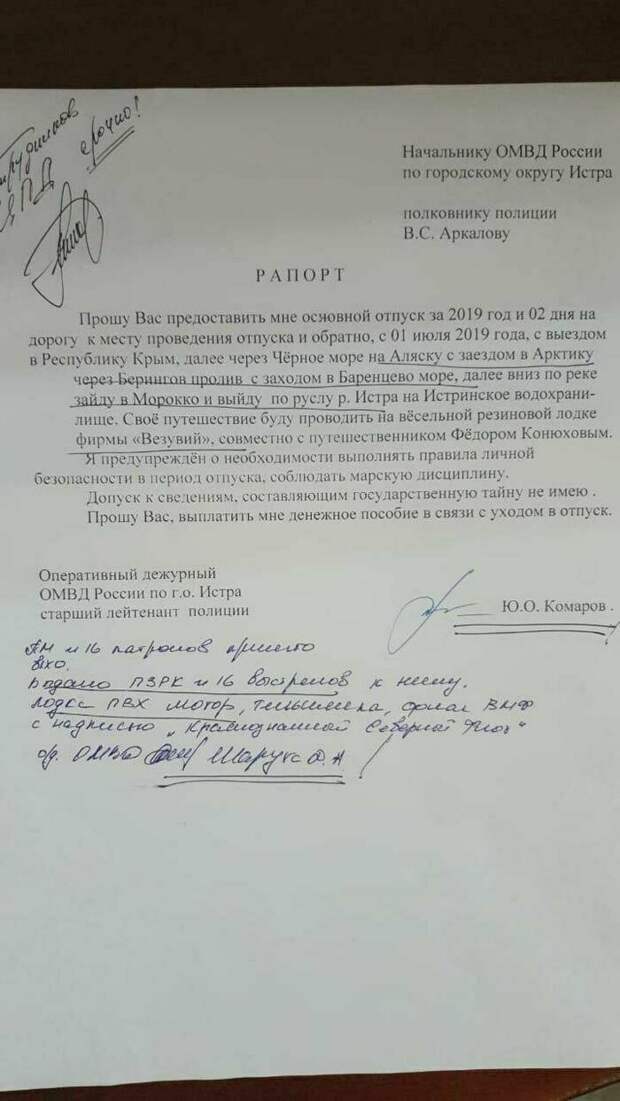 срочно!
Начальнику ОМВД России
по городскому округу Истра
полковнику полиции
В.С. Аркалову
РАПОРТ
Прошу Вас предоставить мне основной отпуск за 2019 год и 02 дня на
дорогу к месту проведения отпуска и обратно, с 01 июля 2019 года, с выездом
в Республику Крым, далее через Чёрное море на Аляску с заездом в Арктику
через Берингов пролив с заходом в Баренцево море, далее вниз по реке
зайду в Морокко и выйду по руслу р. Истра на Истринское водохрани-
лище. Своё путешествие буду проводить на вёсельной резиновой лодке
фирмы «Везувий», совместно с путешественником Фёдором Конюховым.
Я предупреждён о необходимости выполнять правила личной
безопасности в период отпуска, соблюдать марскую дисциплину.
Допуск к сведениям, составляющим государственную тайну не имею .
Прошу Вас, выплатить мне денежное пособие в связи с уходом в отпуск.
Оперативный дежурный
ОМВД России по г.о. Истра
старший лейтенант полиции
Ю.О. Комаров .
ПМ и 16 патронов принято
Выдано ПЗРК и 16 выстрелов к нему.
лодка ПВХ мотор, тельняшка, флаг ВМФ
с надписью „Краснознаменный Северный Флот"
о/д. ОМВД